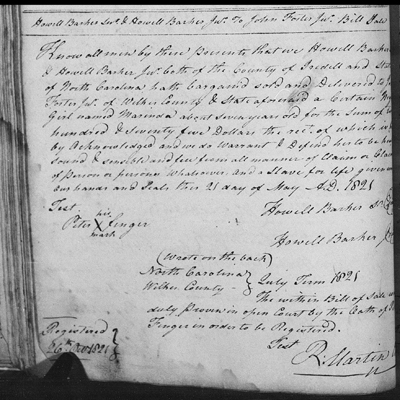 Howell Barker Senr. & Howell Barker Jur. To John Foster Jur. Bill Sale
Know all men by these Presents, that we Howell Barker
& Howell Barker Jur. both of the County of Iredell and State
of North Carolina hath bargained sold and Delivered to
Foster Jur. of Wilkes County & State aforesaid a Certain
Girl named Marinda about seven years old for the Sum of
hundred & Seventy five Dollars the rect. of which is
by Acknowledged and we do warrant & Defend her to be
Sound & sensible and free from all manner of Claim or
of person or persons Whatsoever and a Slave for life given
our hands and Seals this 21 day of May A.D. 1821
Test
his
Peter X Finger
mark
Howell Barker
Howell Barker
(Wrote on the back)
North Carolina
Wilkes County
July Term 1821
The within Bill of Sale
duly Proven in open Court by the Oath of
Finger in order to be Registered.
Test
R. Martin
Registered
26th Oct 1821